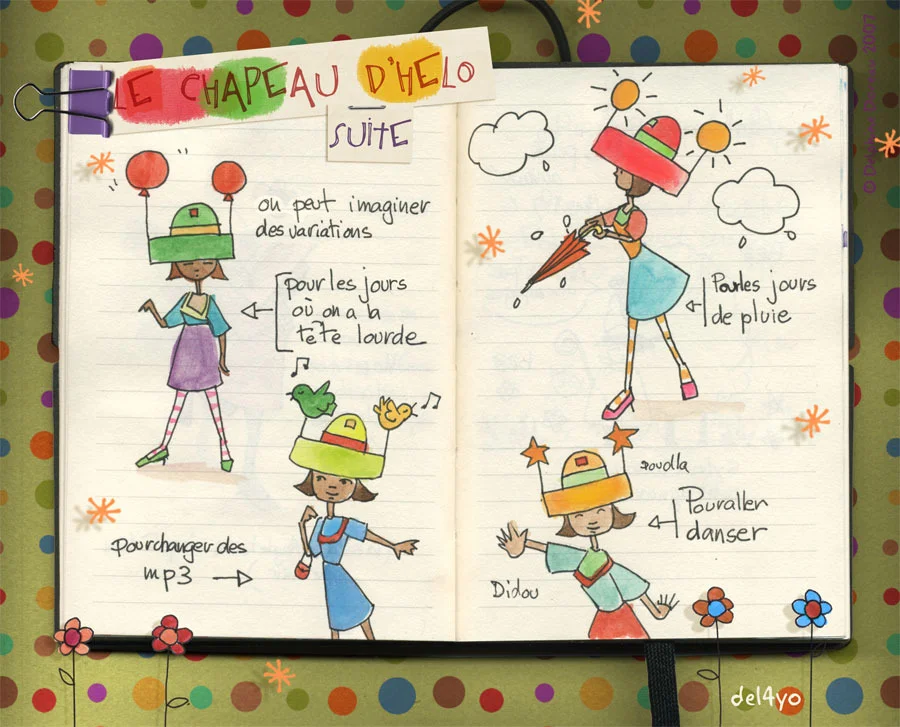 LE CHAPEAU D'HELO
SUITE
on peut imaginer
des variations
pour les jours
où on a la
tête lourde
pour changer des
mp3
Pour les jours
de pluie
Pour aller
danser
Didou
del4yo